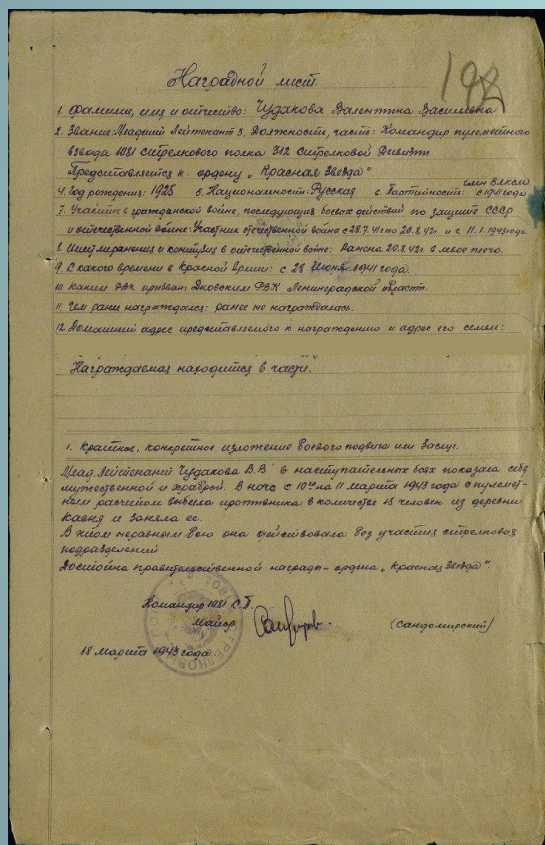 198
Наградной лист.
1. Фамилия, имя и отчество: Чудакова Валентина Васильевна
2. Звание: Младший Лейтенант 3. Должность, часть: Командир пулеметного
взвода 1081 Стрелкового полка 312 Стрелковой Дивизии
Представляется к ордену „Красная Звезда"
4. Год рождения: 1925 5. Национальность: Русская 6. Партийность: член ВЛКСМ с 1941 года
7. Участие в гражданской войне, последующих боевых действий по защите СССР
и отечественной войне: Участник отечественной войне с 28.7.41 по 20.8.42г и с 11.1.1943 года
8. ранения и контузия в отечественной войне: Ранена 20.8.42г в левое плечо.
9. С какого времени в Красной Армии: с 28 Июня 1941 года.
10. Каким РВК призван: Дновским РВК Ленинградской области
11. Чем ранее награждался: ранее не награждалась.
12. Домашний адрес представляемого к награждению и адрес его семьи:
Награждаемая находится в части.
1. Краткое, конкретное изложение боевого подвига или заслуг.
Млад. Лейтенант Чудакова В.В в наступательных боях показала себя
мужественной и храброй. В ночь с 10го на 11 марта 1943 года с пулемет-
ным расчетом выбила противника в количестве человек из деревни
и заняла ее.
В этом неравным бою она действовала без участия стрелковых
подразделений
Достойна правительственной награды - ордена „Красная Звезда"
Командир 1081 С.П.
майор (Сандомирский)
18 Марта 1943 года.